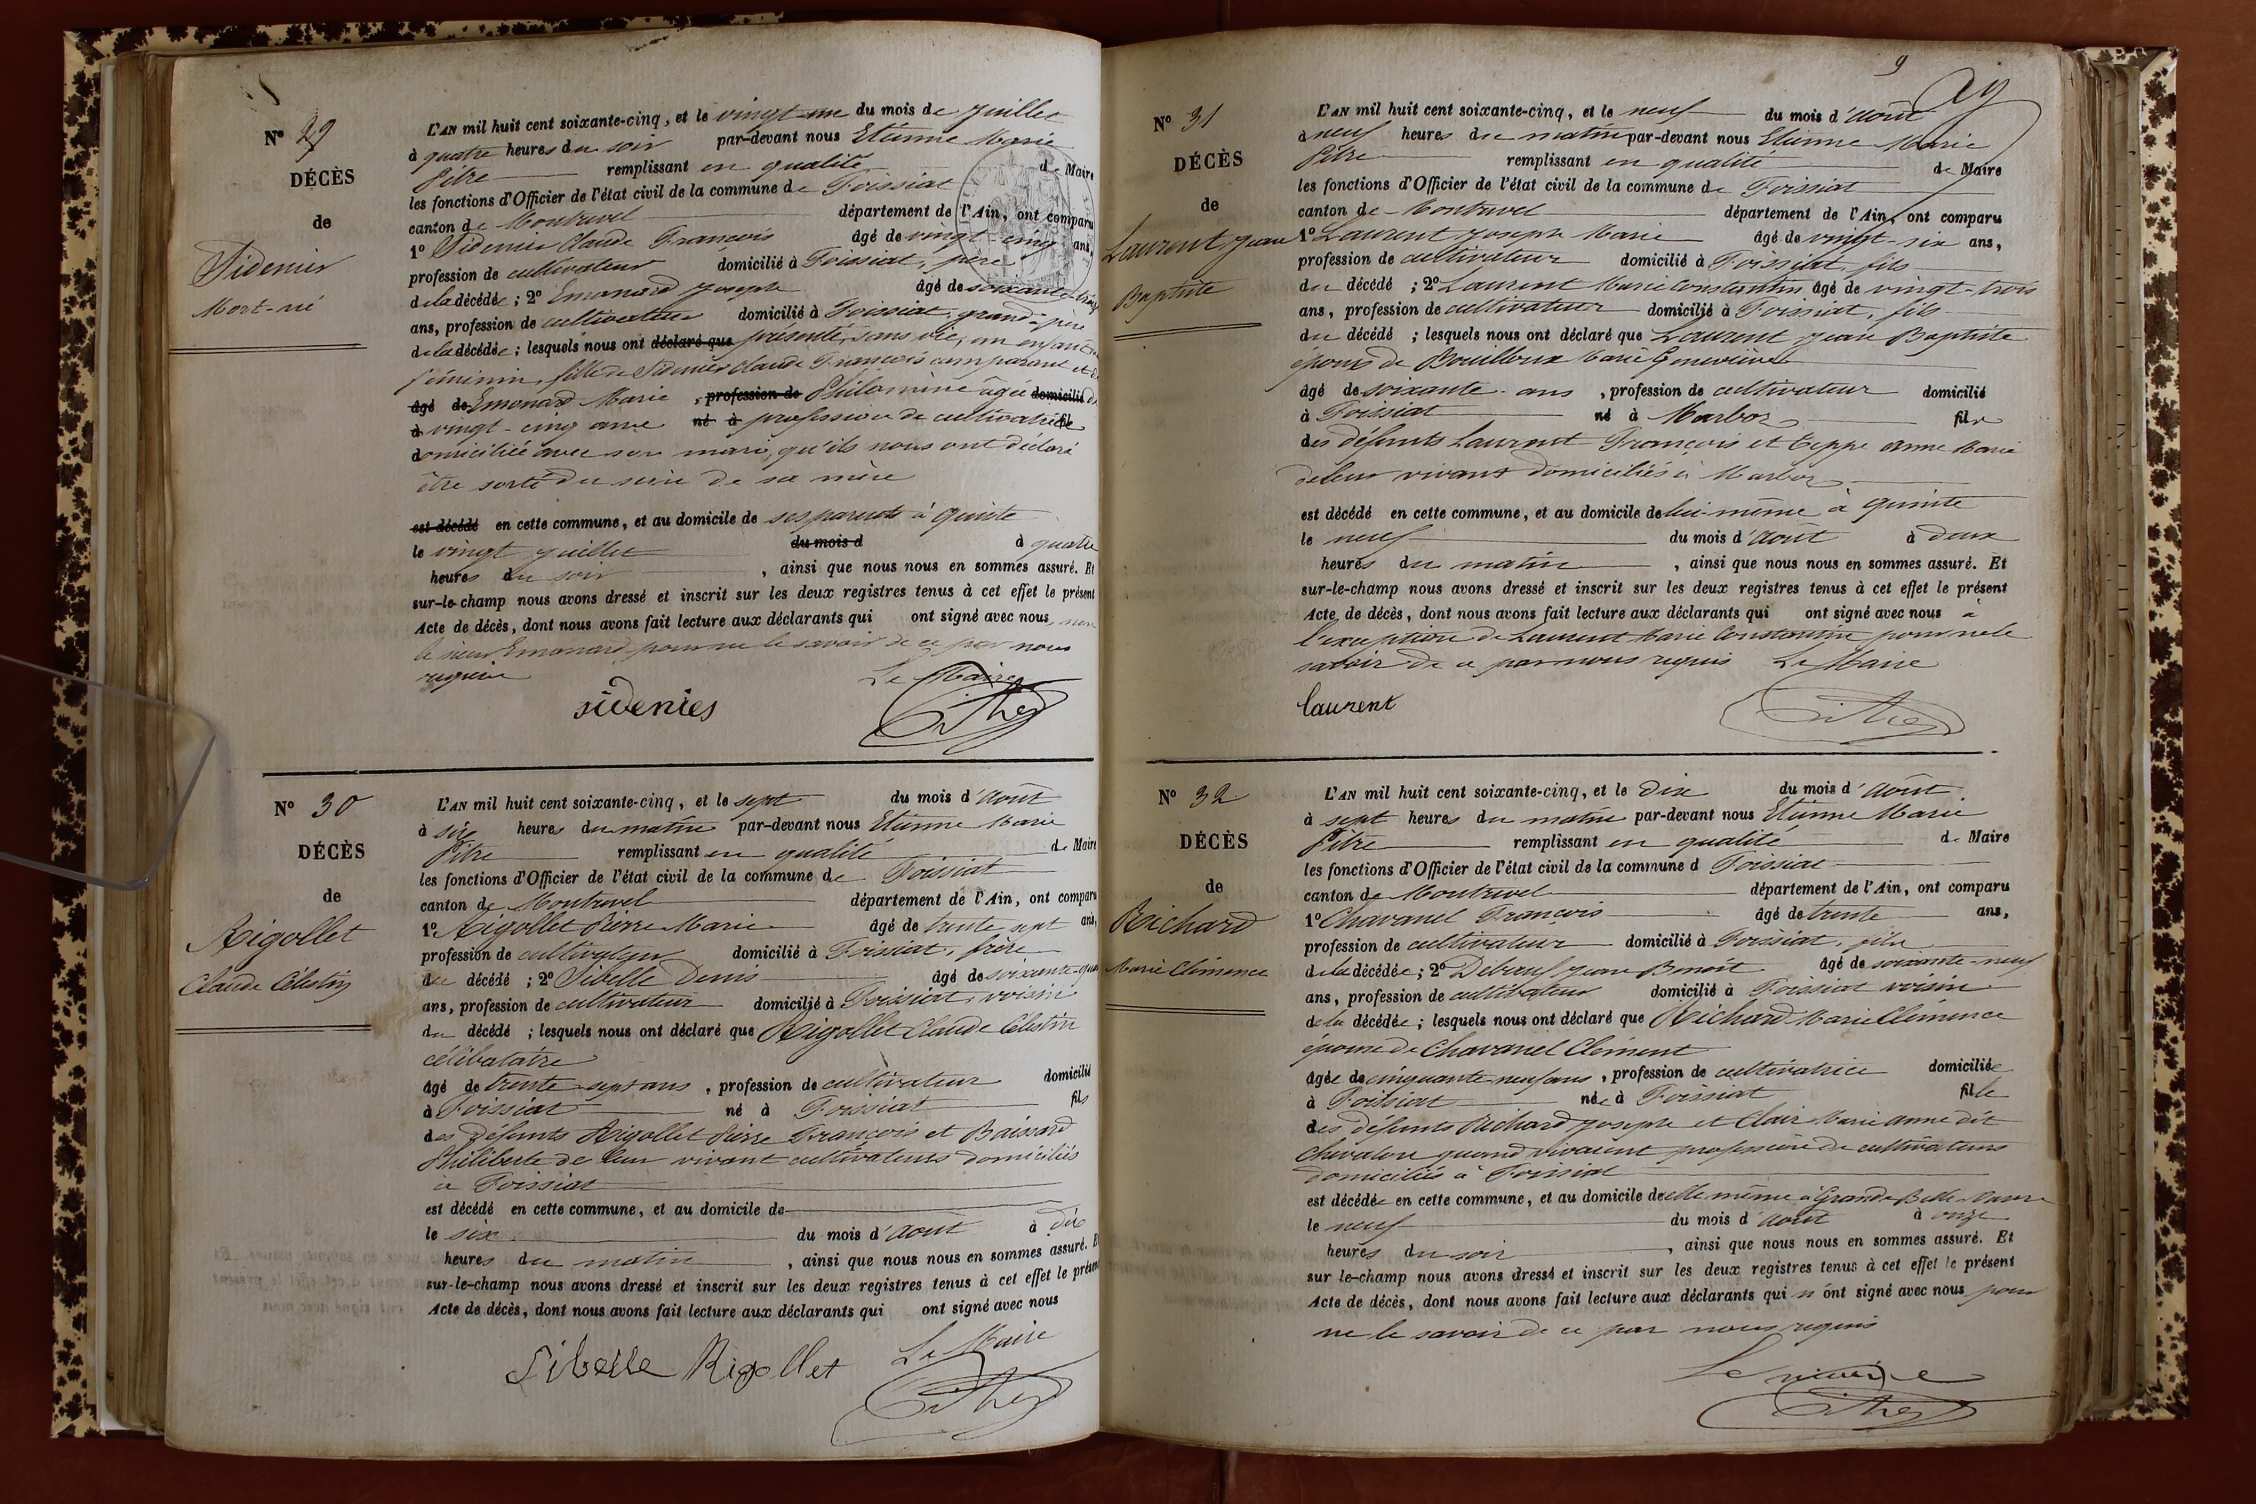 N° 29
DÉCÈS
de
Sidenier
Mort-né
L'AN mil huit cent soixante-cinq, et le vingt-une du mois de Juillet
à quatre heures du soir par-devant nous Etienne Marie
Pitre remplissant en qualité de Maire
les fonctions d'Officier de l'état civil de la commune de Foissiat
canton de Montrevel département de l'Ain, ont comparu
1° Sidenier Claude François âgé de vingt-cinq ans,
profession de cultivateur domicilié à Foissiat, père
de la décédée ; 2° Emonard Joseph âgé de soixante-
ans, profession de cultivateur domicilié à Foissiat, grand-père
de la décédée ; lesquels nous ont déclaré que présenté, sans vie, un enfant
féminin, fille de Sidenier Claude François comparant et de
âgé de Emonard Marie , profession de Philomène âgée domicilié de
à vingt-cinq ans né à profession de cultivatrice fil
domiciliée avec son mari, qu'ils nous ont déclaré
être sorti du sein de sa mère
est décédé en cette commune, et au domicile de ses parents à Quinte
le vingt Juillet du mois d à quatre
heures du soir , ainsi que nous nous en sommes assuré. Et
sur-le-champ nous avons dressé et inscrit sur les deux registres tenus à cet effet le présent
Acte de décès, dont nous avons fait lecture aux déclarants qui ont signé avec nous, non
le sieur Emonard pour ne le savoir de ce par nous
requis Le Maire
sidenies
N° 30
DÉCÈS
de
Rigollet
Claude Célestin
L'AN mil huit cent soixante-cinq, et le sept du mois d'Août
à six heures du matin par-devant nous Etienne Marie
Pitre remplissant en qualité de Maire
les fonctions d'Officier de l'état civil de la commune de Foissiat
canton de Montrevel département de l'Ain, ont comparu
1° Rigollet Pierre Marie âgé de trente sept ans,
profession de cultivateur domicilié à Foissiat, frère
du décédé ; 2° Sibelle Denis âgé de soixante-
ans, profession de cultivateur domicilié à Foissiat, voisin
du décédé ; lesquels nous ont déclaré que Rigollet Claude Célestin
célibataire
âgé de trente-sept ans , profession de cultivateur domicilié
à Foissiat né à Foissiat fils
des défunts Rigollet Pierre François et Baissard
Philiberte de leur vivant cultivateurs domiciliés
à Foissiat
est décédé en cette commune, et au domicile de
le six du mois d'août à dix
heures du matin , ainsi que nous nous en sommes assuré. Et
sur-le-champ nous avons dressé et inscrit sur les deux registres tenus à cet effet le présent
Acte de décès, dont nous avons fait lecture aux déclarants qui ont signé avec nous
Le Maire
Sibelle Rigollet
9
N° 31
DÉCÈS
de
Laurent Jean
Baptiste
L'AN mil huit cent soixante-cinq, et le neuf du mois d'Août
à neuf heures du matin par-devant nous Etienne Marie
Pitre remplissant en qualité de Maire
les fonctions d'Officier de l'état civil de la commune de Foissiat
canton de Montrevel département de l'Ain, ont comparu
1° Laurent Joseph Marie âgé de vingt-six ans,
profession de cultivateur domicilié à Foissiat, fils
du décédé ; 2° Laurent Marie Constantin âgé de vingt-trois
ans, profession de cultivateur domicilié à Foissiat, fils
du décédé ; lesquels nous ont déclaré que Laurent Jean Baptiste
époux de Bouilloux Marie Geneviève
âgé de soixante ans , profession de cultivateur domicilié
à Foissiat né à Marboz fils
des défunts Laurent François et Teppe Anne Marie
de leur vivant domiciliés à Marboz
est décédé en cette commune, et au domicile de lui-même à Quinte
le neuf du mois d'août à deux
heures du matin , ainsi que nous nous en sommes assuré. Et
sur-le-champ nous avons dressé et inscrit sur les deux registres tenus à cet effet le présent
Acte de décès, dont nous avons fait lecture aux déclarants qui ont signé avec nous à
l'exception de Laurent Marie Constantin pour ne le
savoir de ce par nous requis Le Maire
laurent
N° 32
DÉCÈS
de
Richard
Marie Clémence
L'AN mil huit cent soixante-cinq, et le dix du mois d'Août
à sept heures du matin par-devant nous Etienne Marie
Pitre remplissant en qualité de Maire
les fonctions d'Officier de l'état civil de la commune d Foissiat
canton de Montrevel département de l'Ain, ont comparu
1° Chavanel François âgé de trente ans,
profession de cultivateur domicilié à Foissiat, fils
de la décédée ; 2° Debeuf Jean Benoit âgé de soixante-neuf
ans, profession de cultivateur domicilié à Foissiat voisin
de la décédée ; lesquels nous ont déclaré que Richard Marie Clémence
épouse de Chavanel Clément
âgée de cinquante-neuf ans , profession de cultivatrice domiciliée
à Foissiat née à Foissiat fille
des défunts Richard Joseph et Clair Marie Anne dit
Chevalon quand vivaient profession de cultivateurs
domiciliés à Foissiat
est décédée en cette commune, et au domicile de elle même à Grande Belle Vavre
le neuf du mois d'Août à onze
heures du soir , ainsi que nous nous en sommes assuré. Et
sur le-champ nous avons dressé et inscrit sur les deux registres tenus à cet effet le présent
Acte de décès, dont nous avons fait lecture aux déclarants qui n'ont signé avec nous pour
ne le savoir de ce par nous requis
Le maire